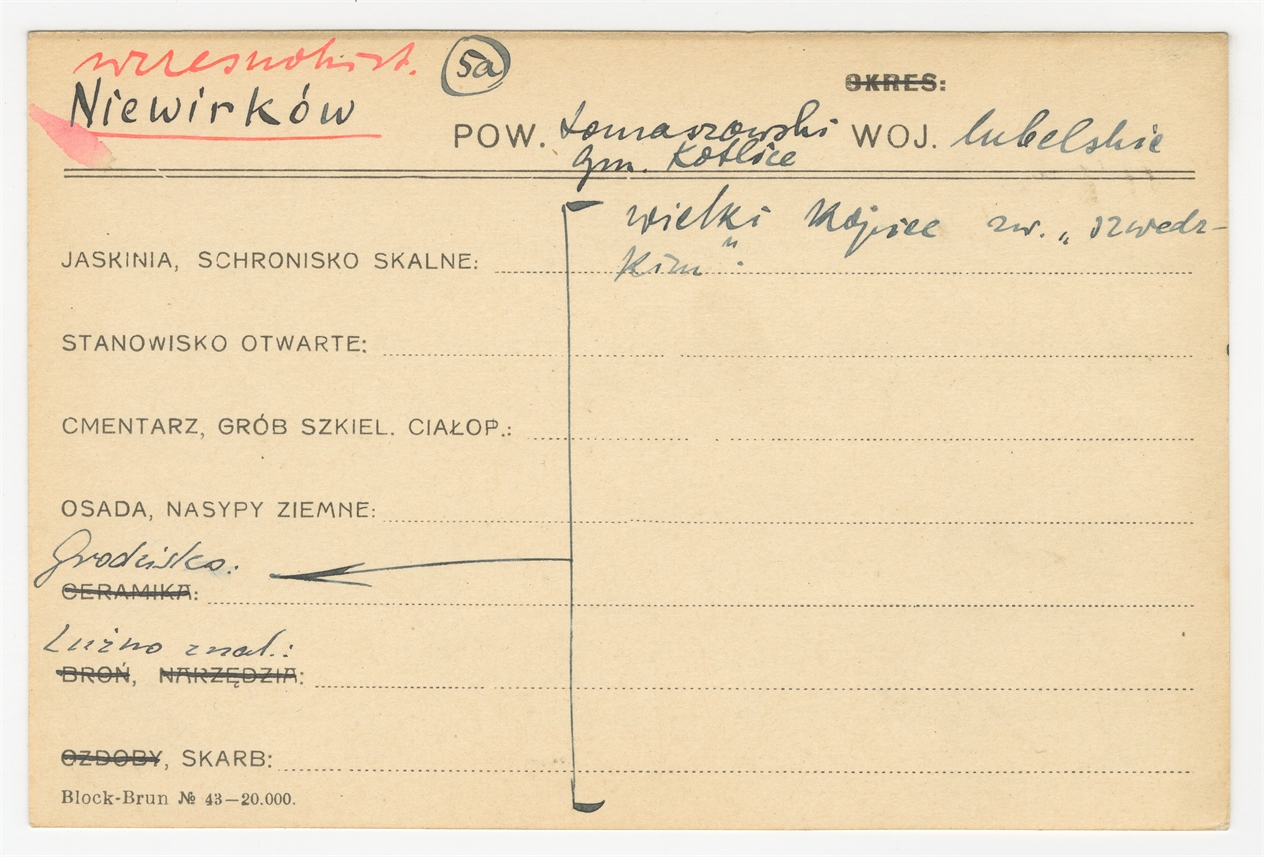 wczesnohist. 5a
Niewirków
OKRES:
POW. tomaszowski WOJ. lubelskie
gm. Kotlice
wielki kopiec zw. „szwedz-
kim".
JASKINIA, SCHRONISKO SKALNE:
STANOWISKO OTWARTE:
CMENTARZ, GRÓB SZKIEL. CIAŁOP.:
OSADA, NASYPY ZIEMNE:
Grodzisko.
CERAMIKA:
Luźno znal.:
BROŃ, NARZĘDZIA:
OZDOBY, SKARB:
Block-Brun № 43—20.000.